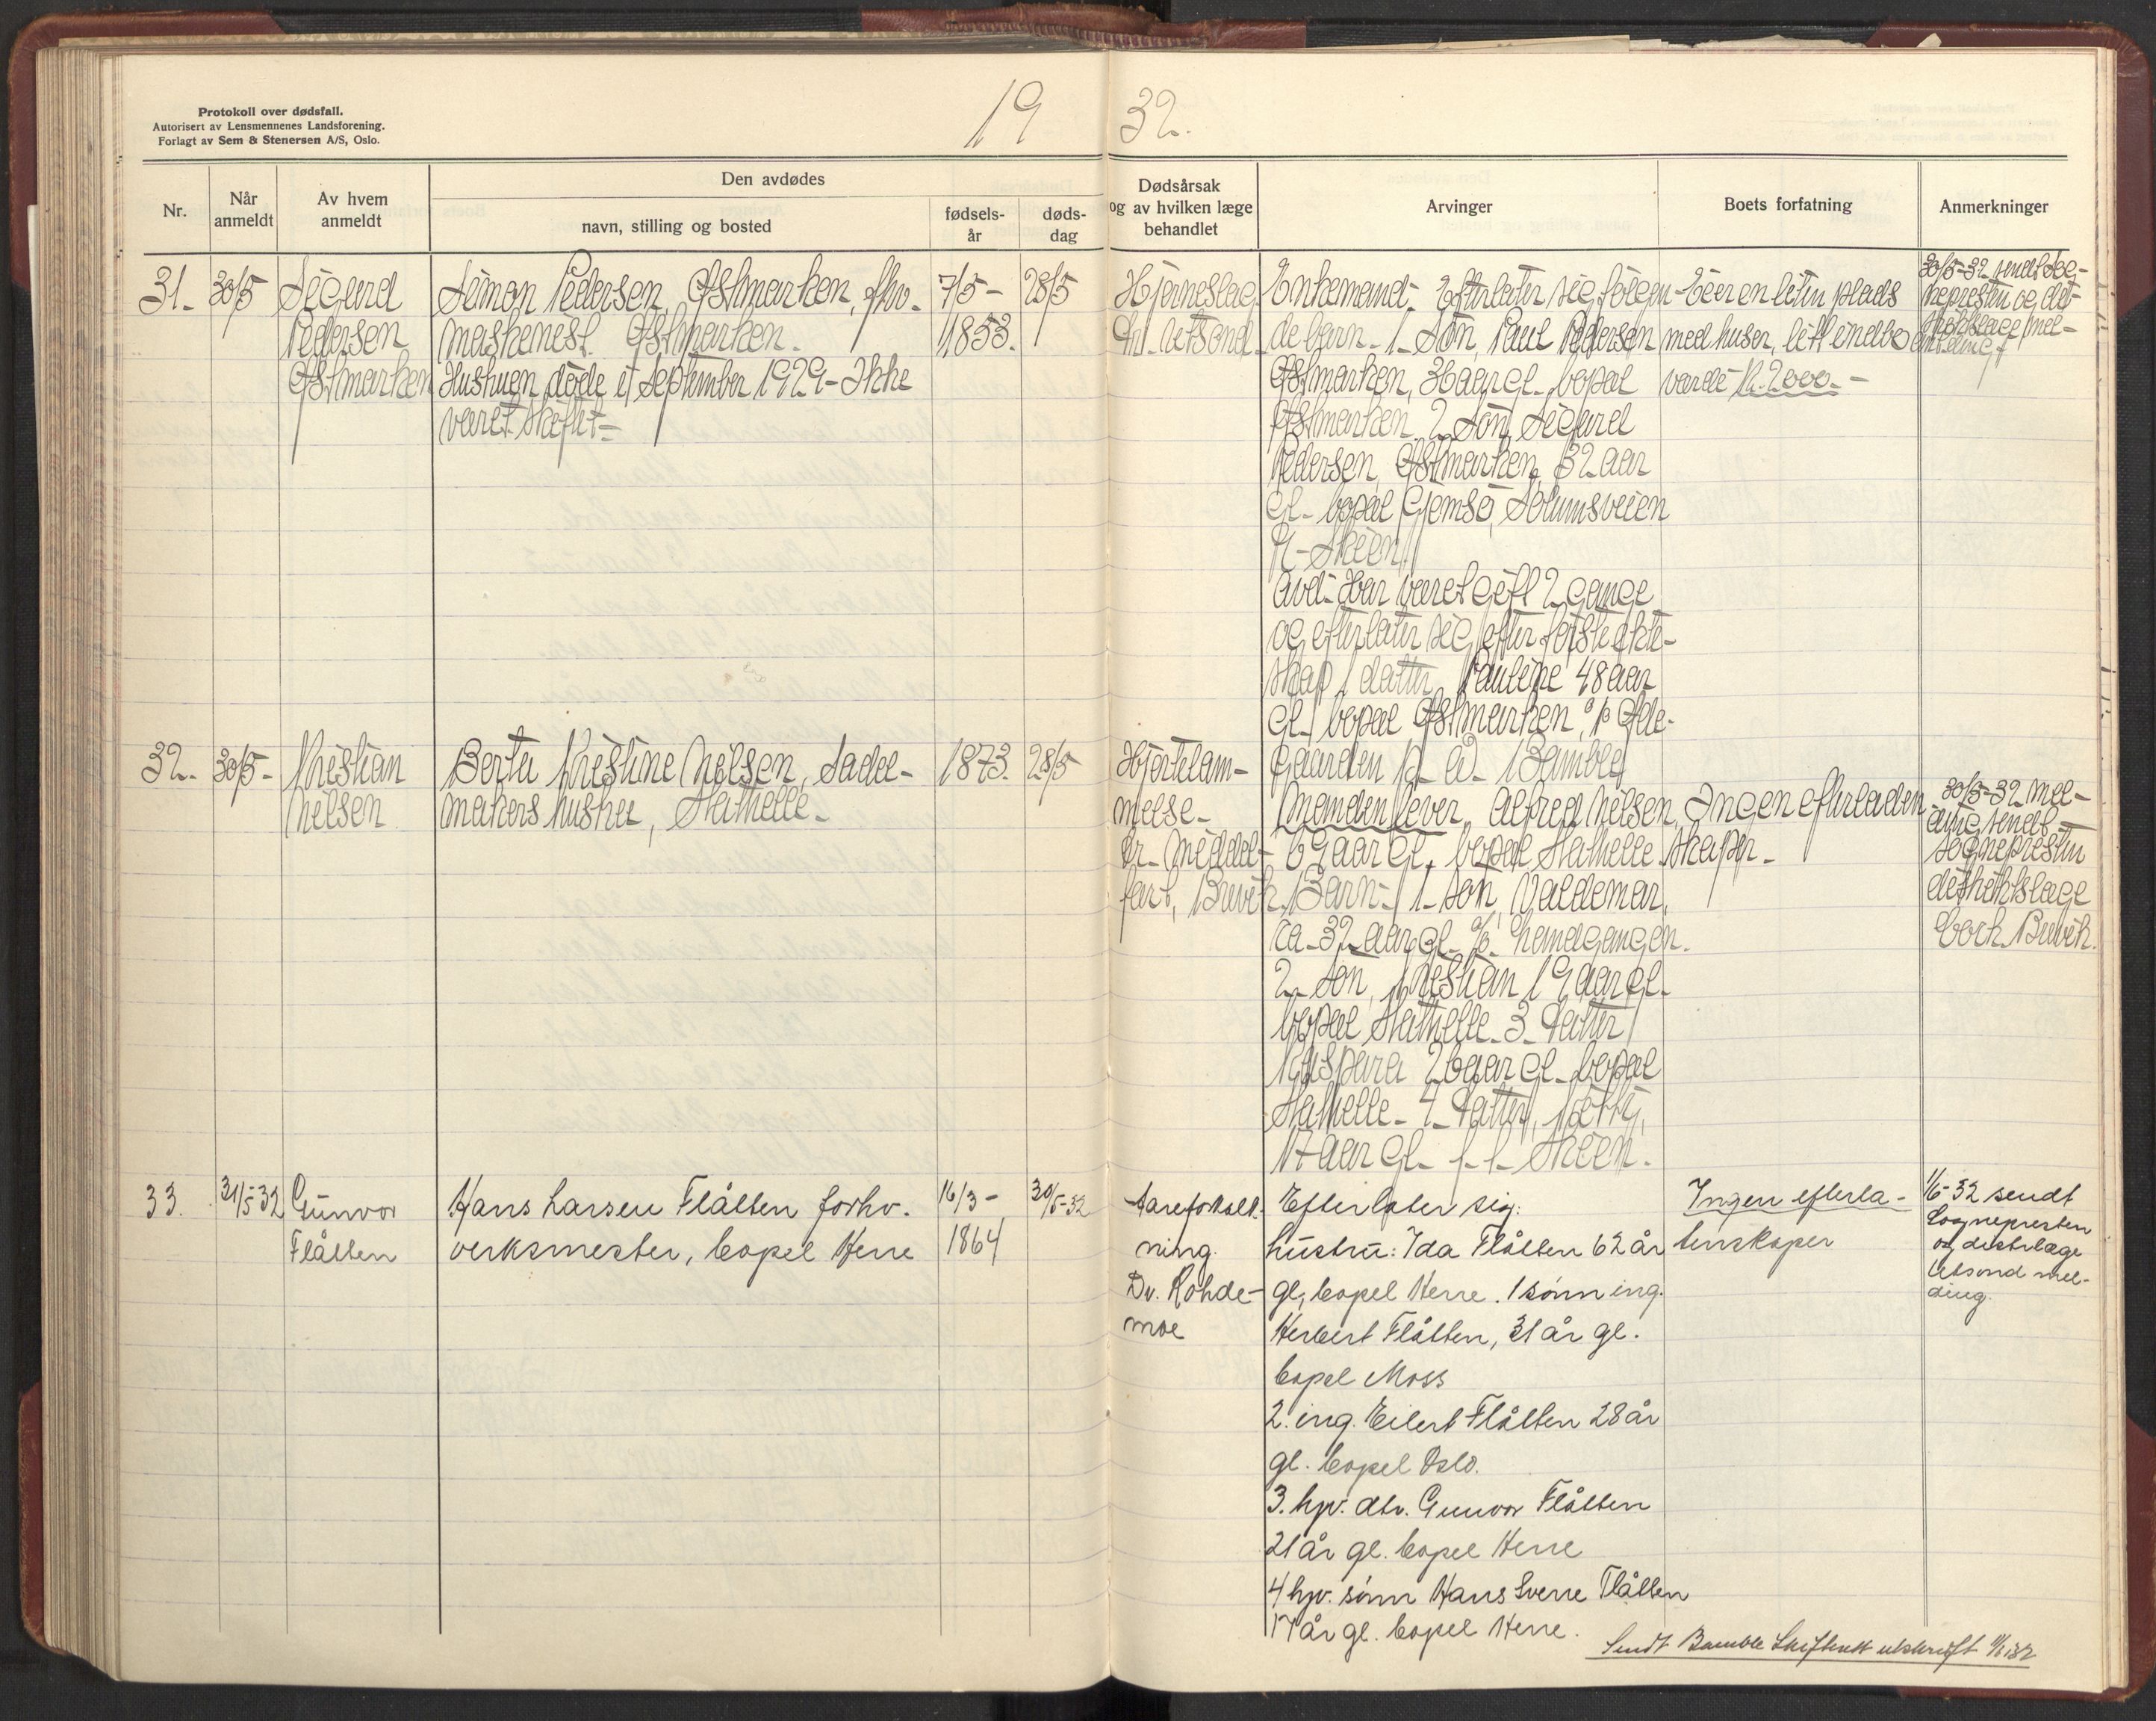 Protokoll over dødsfall.
Autorisert av Lensmennenes Landsforening.
Forlagt av Sem & Stenersen A/S, Oslo.
19 32.
Nr.
Når anmeldt
Av hvem anmeldt
Den avdødes
navn, stilling og bosted
fødsels-år
døds-dag
Dødsårsak og av hvilken læge behandlet
Arvinger
Boets forfatning
Anmerkninger
31.
30/5
Sigurd
Pedersen
Østmarken
Simon Pedersen, Østmarken, fhv.
maskinest. Østmarken.
Hustruen døde i september 1929 - Ikke
været skiftet -
7/5 -
1853.
28/5
Hjerneslag
Dr. Utsond
Enkemand - Efterlater sig følgen-
de barn - 1. Søn, Paul Pedersen
Østmarken, 36 aar gl. bopæl
Østmarken. 2. Søn, Sigurd
Pedersen, Østmarken, 32 aar
gl. bopæl Gjemsø, Solumsveien
- Skien.
Avd. Har været gift 2 gange
og efterlater sig efter første ekte-
skap 1 datter, Pauline 48 aar
gl. bopæl Østmarken,
gaarden Bamble
Eier en liten plads
med huser, litt indbo
værdi kr. 2000. -
30/5-32 sendt Sog-
nepresten og dist-
riktslæge mel-
ding
32.
30/5 -
Kristian
Nilsen
Berta Kristine Nilsen, Sadel-
makers hustru, Stathelle.
1873.
28/5
Hjertelam-
melse -
dr. Middel-
fart, Brevik
Manden lever, Alfred Nilsen,
69 aar gl. bopæl Stathelle.
Barn - 1. søn, Valdemar,
ca. 32 aar gl. handgangen.
2. Søn, Kristian 19 aar gl.
bopæl Stathelle. 3. Datter
Kaspara 26 aar gl. bopæl
Stathelle - 4. Datter,
17 aar gl. Skien.
Ingen efterladen-
skaper -
30/5-32 Mel-
ding sendt
Sognepresten
distriktslæge
Brevik.
33.
31/5-32
Gunvor
Flåtten
Hans Larsen Flåtten forhv.
verksmester, bopel Herre
16/3 -
1864
30/5-32
Aareforkalk-
ning.
Dr. Rohde-
moe
Efterlater sig:
hustru: Ida Flåtten 62 år
gl, bopel Herre. 1 sønn ing.
Herbert Flåtten, 31 år gl.
bopel Moss
2. ing. Eilert Flåtten 28 år
gl. bopel Oslo.
3. hjv. dtr. Gunvor Flåtten
21 år gl. bopel Herre
4 hjv. sønn Hans Sverre Flåtten
17 år gl. bopel Herre.
Ingen efterla-
tenskaper
1/6-32 sendt
Sognepresten
og distr.læge
Utsond mel-
ding.
Sendt Bamble Skifterett utskrift